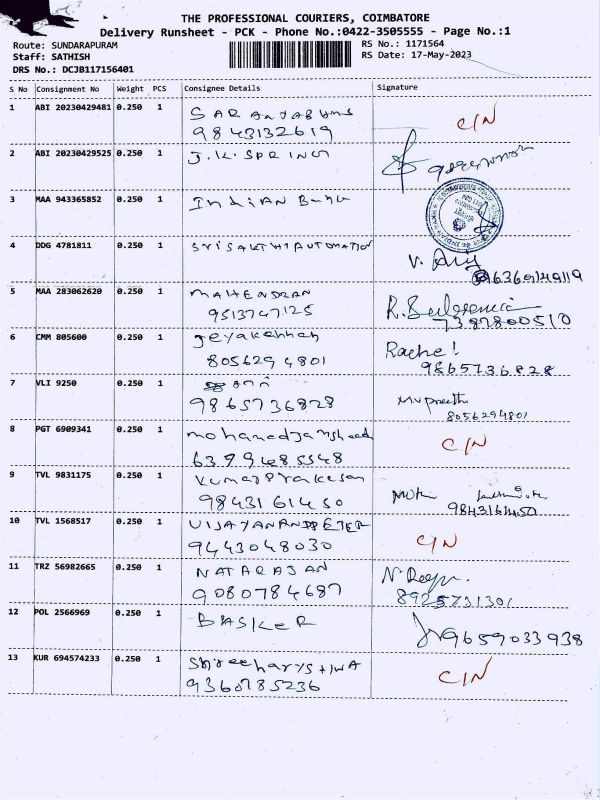 THE PROFESSIONAL COURIERS, COIMBATORE
Delivery Runsheet - PCK - Phone No.:0422-3505555 - Page No.:1
Route: SUNDARAPURAM
RS No.: 1171564
Staff: SATHISH
RS Date: 17-May-2023
DRS No.: DCJB117156401
S No Consignment No Weight PCS Consignee Details Signature
1 ABI 20230429481 0.250 1
9843132619 C/N
2 ABI 20230429525 0.250 1 J.K. SPRING
3 MAA 943365852 0.250 1 Indian Bank
4 DDG 4781811 0.250 1 SriSAKTHIAUTOMATION
5 MAA 283062620 0.250 1 MAHENDRAN
9513747125 7387800510
6 CMM 805600 0.250 1 Jeyakannan Rachel
8056294801 9865736828
7 VLI 9250 0.250 1
9865736828 8056294801
8 PGT 6909341 0.250 1 mohamedjamsheed C/N
6379485548
9 TVL 9831175 0.250 1 Kumar Prakasan
9843161450 9843161450
10 TVL 1568517 0.250 1 VIJAYANANDPETER C/N
9443048030
11 TRZ 56982665 0.250 1 NATARAJAN
9080784687 8925731301
12 POL 2566969 0.250 1 BASKER 9659033938
13 KUR 694574233 0.250 1 C/N
9360785236